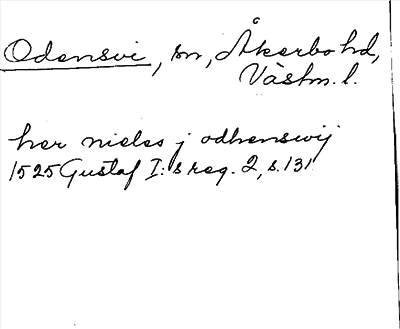 Odensvi, sn, Åkerbo hd,
Västm. l.
her nielss j odhenswij
1525 Gustaf I:s reg. 2, s. 131